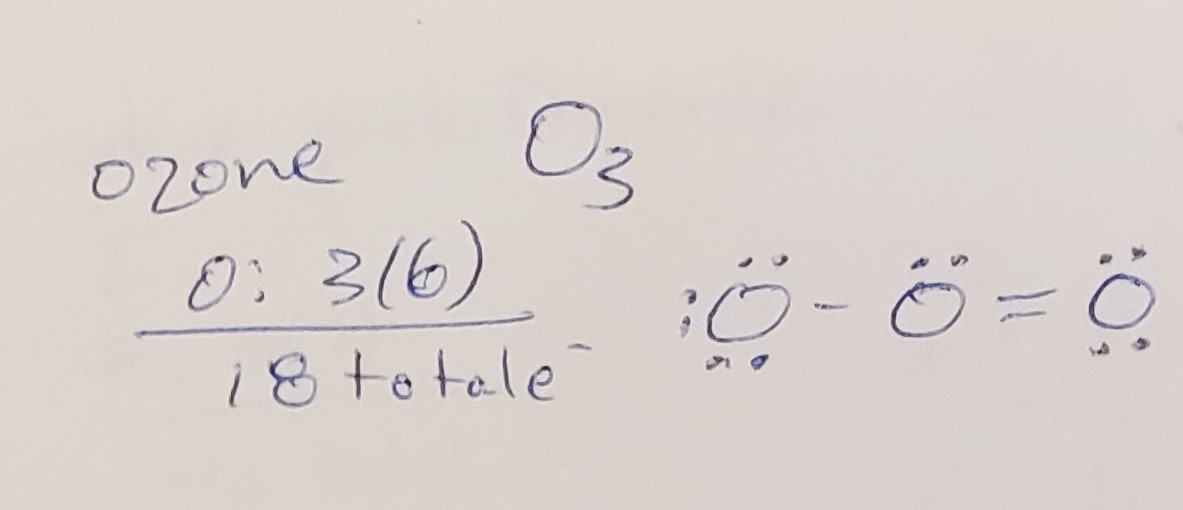 ozone O₃
O: 3(6)
18 total e⁻
:Ö̤ - Ö = Ö̤